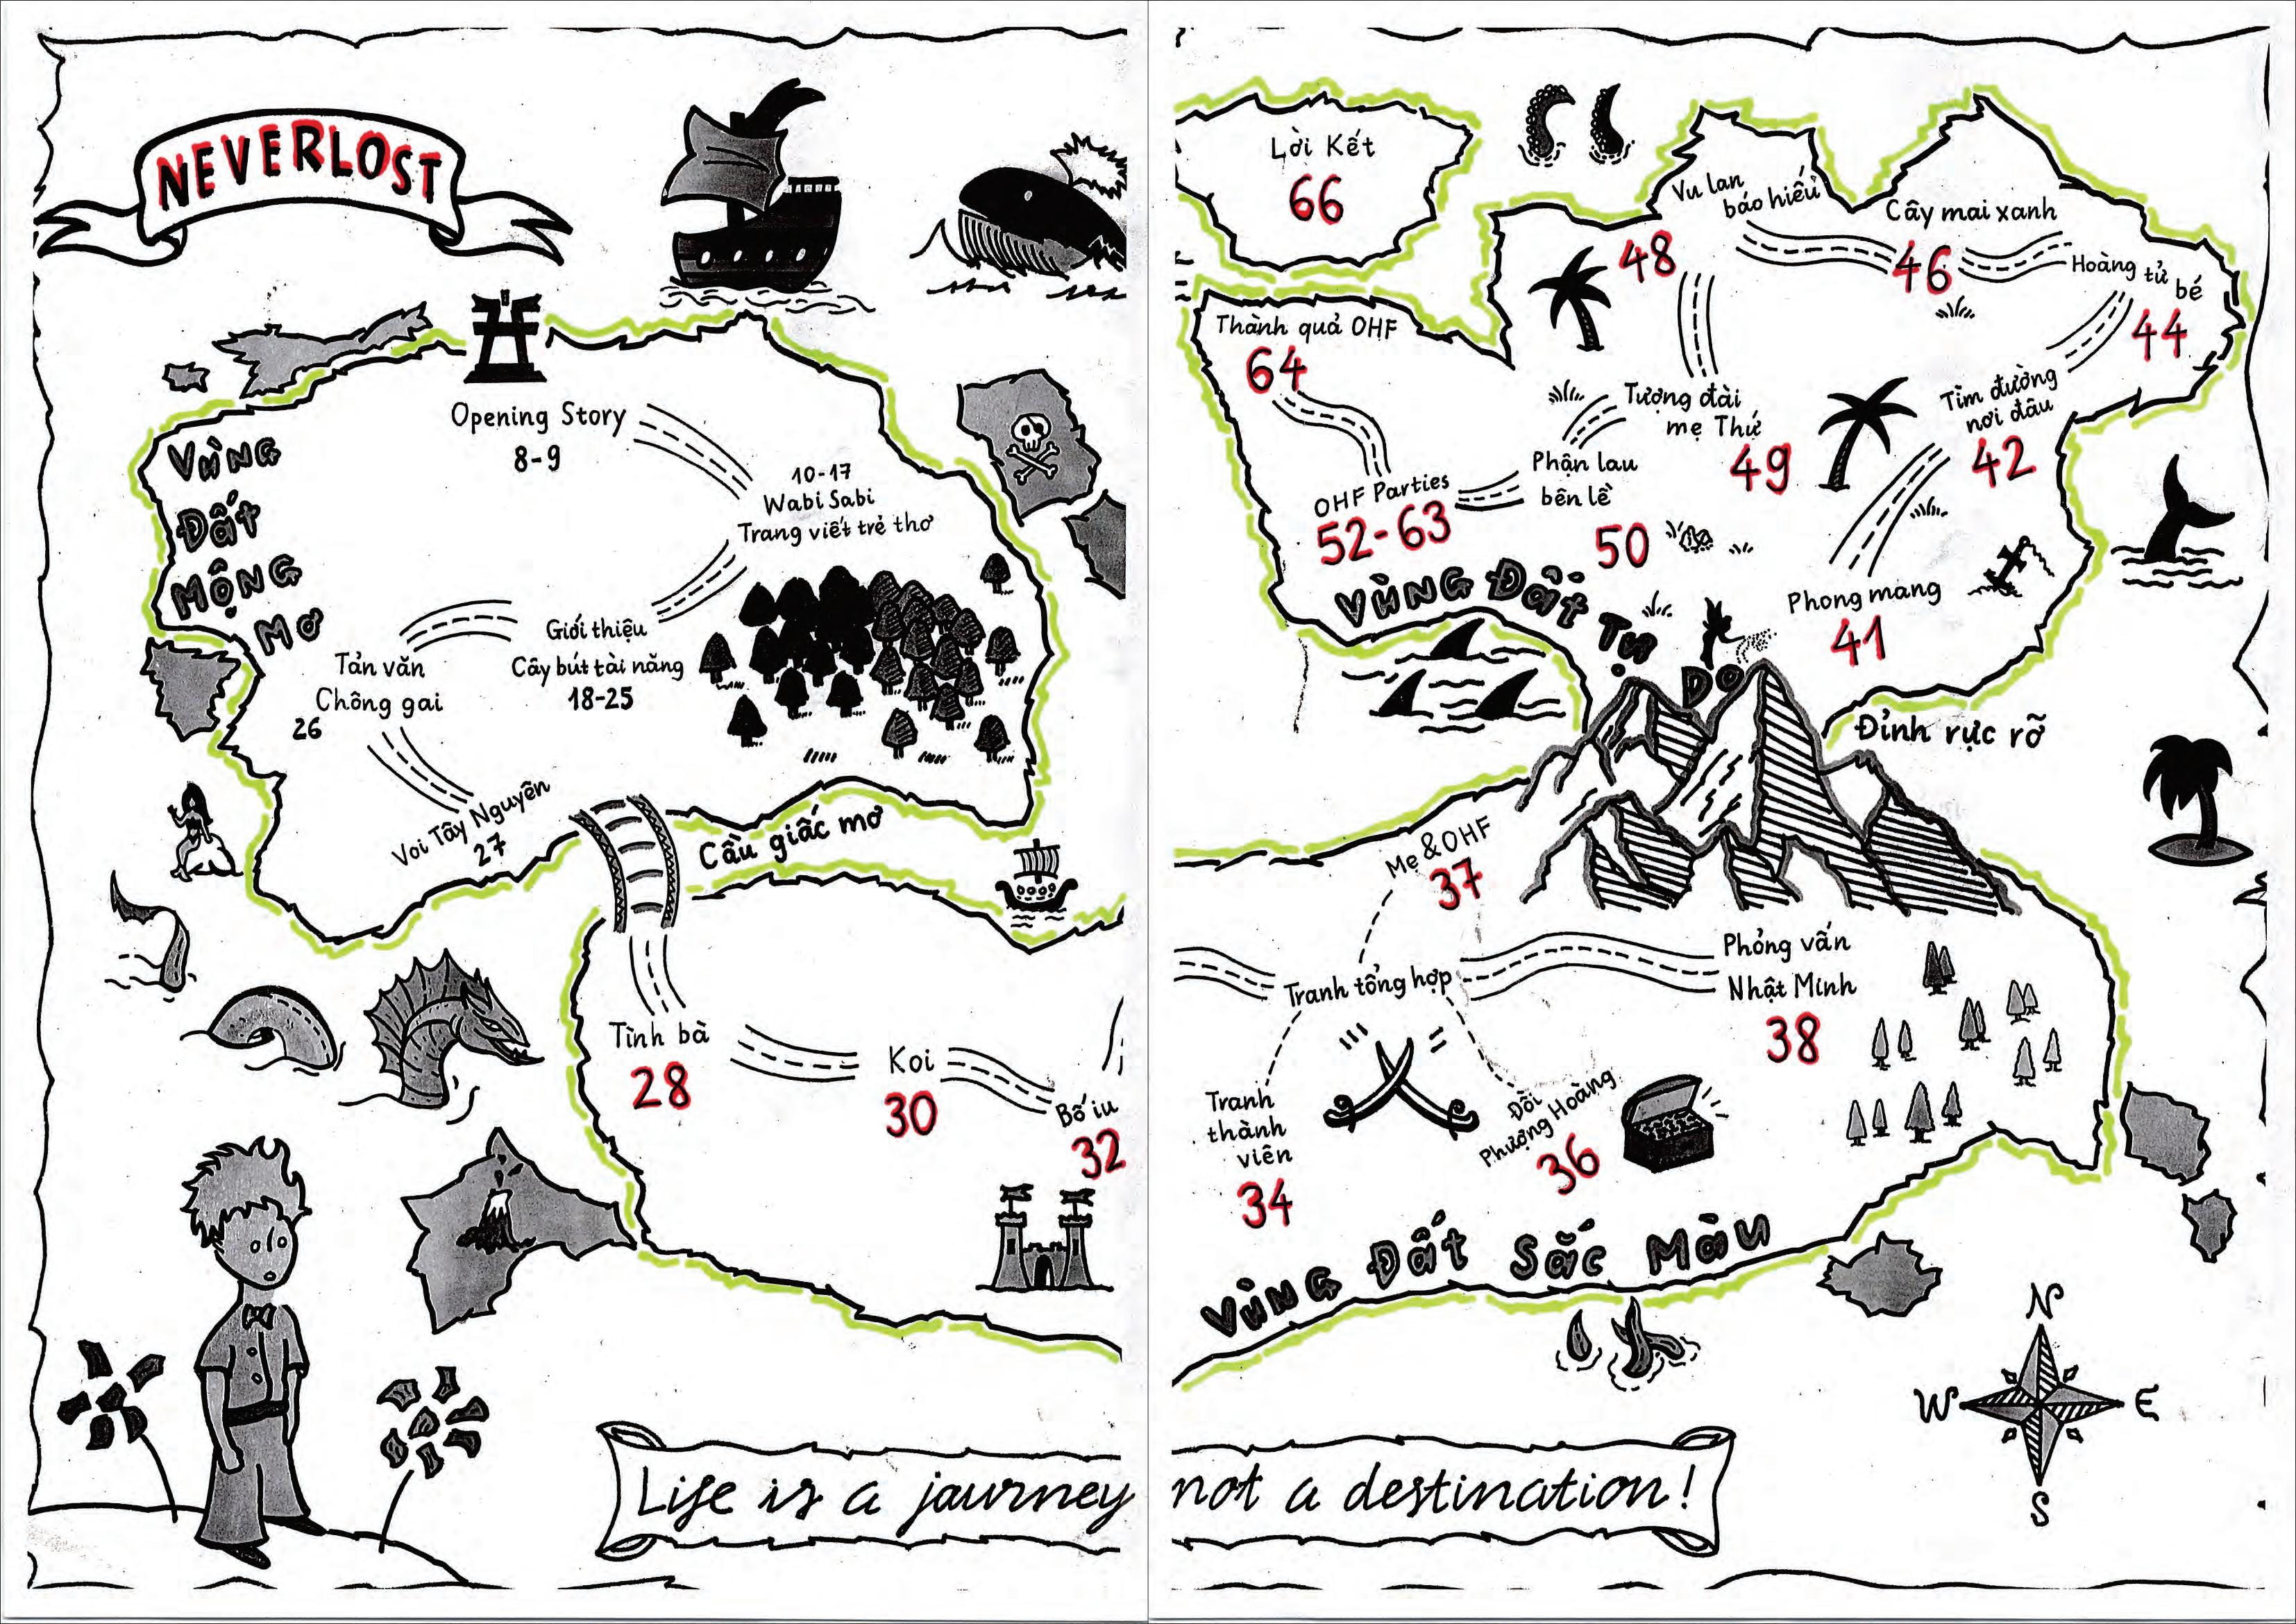 NEVERLOST
Vùng
Đất
Mộng
Mơ
Opening Story
8-9
10-17
Wabi Sabi
Trang viết trẻ thơ
Giới thiệu
Cây bút tài năng
18-25
Tản văn
Chông gai
26
Voi Tây Nguyên
27
Cầu giấc mơ
Tình bà
28
Koi
30
Bố iu
32
Life is a journey
Lời Kết
66
Vu lan
báo hiếu
48
Cây mai xanh
46
Hoàng tử bé
44
Thành quả OHF
64
Tượng đài
mẹ Thứ
49
Tìm đường
nơi đâu
42
Phận lau
bên lề
50
OHF Parties
52-63
Vùng Đất Tự Do
Phong mang
41
Đỉnh rực rỡ
Mẹ & OHF
37
Tranh tổng hợp
Phỏng vấn
Nhật Minh
38
Tranh
thành
viên
34
Đồi
Phượng Hoàng
36
Vùng Đất Sắc Màu
N
W
E
S
not a destination!